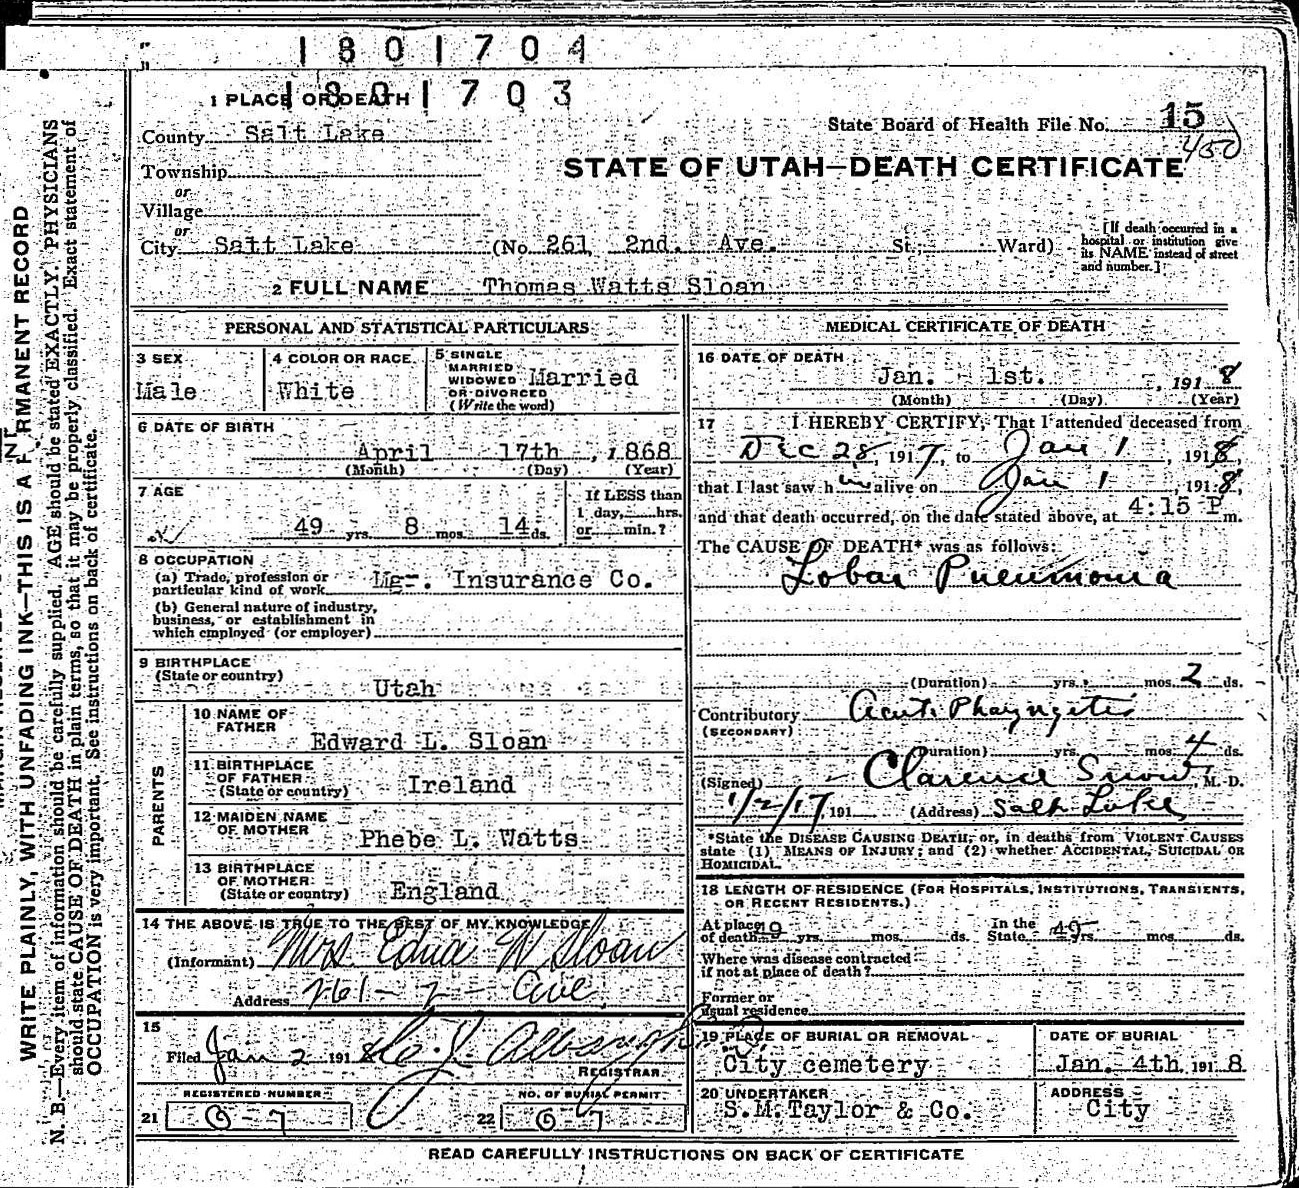 1801704
1801703
1 PLACE OF DEATH
County Salt Lake
State Board of Health File No. 15
450
STATE OF UTAH—DEATH CERTIFICATE
Township
or
Village
or
City Salt Lake (No. 261 2nd. Ave. St.; Ward)
[If death occurred in a hospital or institution give its NAME instead of street and number.]
2 FULL NAME Thomas Watts Sloan
PERSONAL AND STATISTICAL PARTICULARS
3 SEX
Male
4 COLOR OR RACE
White
5 SINGLE
MARRIED
WIDOWED
OR DIVORCED
(Write the word)
Married
6 DATE OF BIRTH
April 17th, 1868
(Month) (Day) (Year)
7 AGE
49 yrs. 8 mos. 14 ds.
If LESS than
1 day, hrs.
or min.?
8 OCCUPATION
(a) Trade, profession or
particular kind of work Mgr. Insurance Co.
(b) General nature of industry,
business, or establishment in
which employed (or employer)
9 BIRTHPLACE
(State or country)
Utah
PARENTS
10 NAME OF
FATHER
Edward L. Sloan
11 BIRTHPLACE
OF FATHER
(State or country) Ireland
12 MAIDEN NAME
OF MOTHER
Phebe L. Watts
13 BIRTHPLACE
OF MOTHER
(State or country) England
14 THE ABOVE IS TRUE TO THE BEST OF MY KNOWLEDGE
(Informant) Mrs Edna W Sloan
Address 261 - 2 - Ave.
15
Filed Jan 2 1918
REGISTRAR
REGISTERED NUMBER
21 0-7
NO. OF BURIAL PERMIT
22 0-7
MEDICAL CERTIFICATE OF DEATH
16 DATE OF DEATH
Jan. 1st. , 1918
(Month) (Day) (Year)
17 I HEREBY CERTIFY, That I attended deceased from
Dec 28, 1917, to Jan 1, 1918,
that I last saw him alive on Jan 1 1918,
and that death occurred, on the date stated above, at 4:15 P m.
The CAUSE OF DEATH* was as follows:
Lobar Pneumonia
(Duration) yrs. mos. 2 ds.
Contributory Acute Pharyngitis
(SECONDARY)
(Duration) yrs. mos. 4 ds.
(Signed) Clarence Snow, M. D.
1/2/17 191 (Address) Salt Lake
*State the DISEASE CAUSING DEATH; or, in deaths from VIOLENT CAUSES
state (1) MEANS OF INJURY; and (2) whether ACCIDENTAL, SUICIDAL OR
HOMICIDAL.
18 LENGTH OF RESIDENCE (FOR HOSPITALS, INSTITUTIONS, TRANSIENTS,
OR RECENT RESIDENTS.)
At place
of death yrs. mos. ds. In the
State 49 yrs. mos. ds.
Where was disease contracted
if not at place of death?
Former or
usual residence
19 PLACE OF BURIAL OR REMOVAL
City cemetery
DATE OF BURIAL
Jan. 4th. 1918
20 UNDERTAKER
S.M.Taylor & Co.
ADDRESS
City
READ CAREFULLY INSTRUCTIONS ON BACK OF CERTIFICATE
WRITE PLAINLY, WITH UNFADING INK—THIS IS A PERMANENT RECORD
N. B.—Every item of information should be carefully supplied. AGE should be stated EXACTLY. PHYSICIANS
should state CAUSE OF DEATH in plain terms, so that it may be properly classified. Exact statement of
OCCUPATION is very important. See instructions on back of certificate.